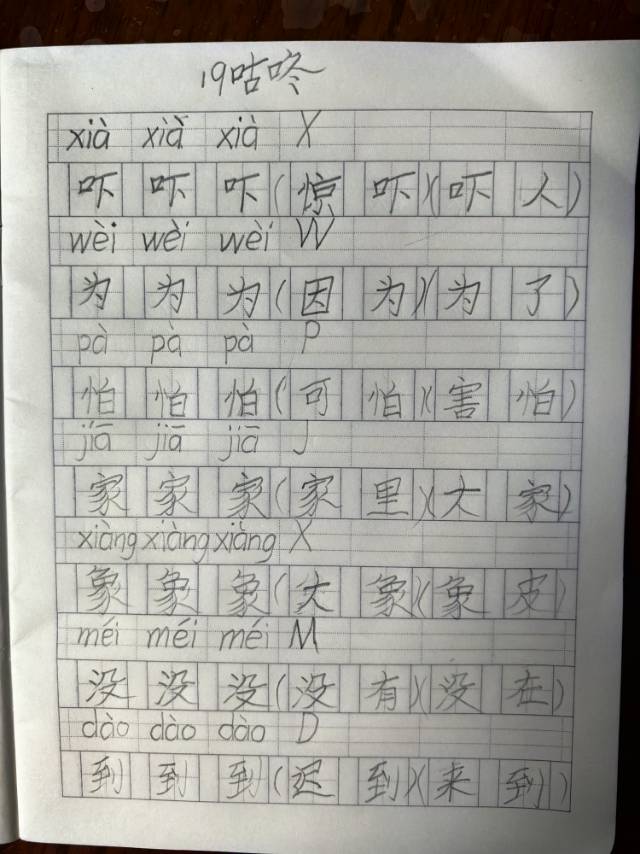 19咕咚
xià xià xià X
吓 吓 吓(惊 吓)(吓 人)
wèi wèi wèi W
为 为 为(因 为)(为 了)
pà pà pà P
怕 怕 怕(可 怕)(害 怕)
jiā jiā jiā J
家 家 家(家 里)(大 家)
xiàng xiàng xiàng X
象 象 象(大 象)(象 皮)
méi méi méi M
没 没 没(没 有)(没 在)
dào dào dào D
到 到 到(迟 到)(来 到)